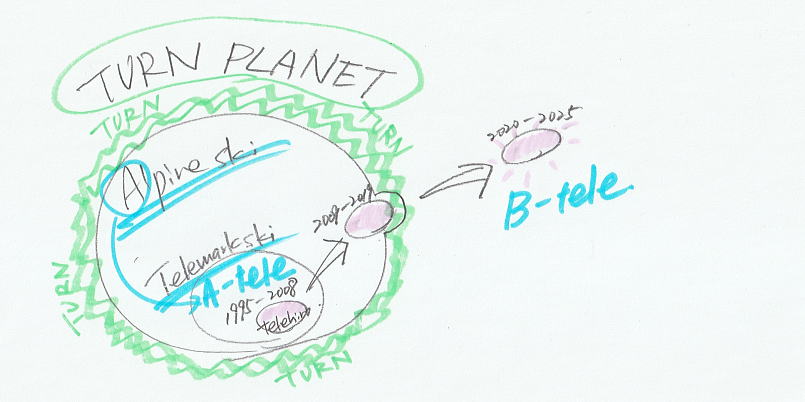 TURN PLANET
TURN
TURN
2020-2025
Alpine ski
B-tele
2009-2019
Telemark ski
A-tele
1995-2008
telehiro
TURN
TURN